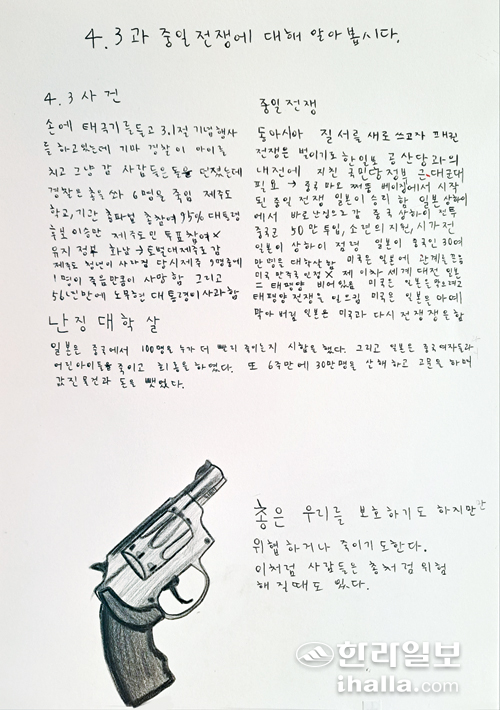 4.3과 중일전쟁에 대해 알아봅시다.
4.3 사건
손에 태극기를들고 3.1절 기념행사
를 하고있는데 기마 경찰이 아이를
치고 그냥 감 사람들은 돌을 던졌는데
경찰은 총을 쏴 6명을 죽임 제주도
학교, 기관 총파업 총참여 95% 대통령
후보 이승만 제주도민 투표참여×
유지 정부 화남 → 토벌대제주도감
제주도 청년이 사라짐 당시제주 9명중에
1명이 죽음만큼이 사망함 그리고
56년만에 노무현 대통령이사과함
중일전쟁
동아시아 질서를 새로 쓰고자 했던
전쟁은 벌이기도 한일본 공산당과의
내전에 지친 국민당정부 근대군대
필요 → 중국 마오 쩌뚱 베이징에서 시작
된 중일 전쟁 일본이 승리함 일본 상하이
에서 바로난징으로감 중국 상하이 전투
중국군 50만 투입, 소련의 지원, 시가전
일본이 상하이 점령 일본이 중국인 30여
만명을 대학살함 미국은 일본에 관계를끊음
미국 만주국 인정× 제 이차 세계 대전 일본
= 태평양 비어있음 미국은 일본을막으려고
태평양 전쟁을 일으킴 미국은 일본은 아예
막아 버림 일본은 미국과 다시 전쟁쟁을함
난징 대학살
일본은 중국에서 100명을 누가 더 빨리 죽이는지 시합을 했다. 그리고 일본은 중국여자들과
어린아이들을 죽이고 희롱을하였다. 또 6주만에 30만명을 살해 하고 고문을 하며
값진 물건과 돈을 뺏었다.
총은 우리를 보호하기도 하지만
위협하거나 죽이기도한다.
이처럼 사람들은 총처럼 위험
해질때도 있다.
한라일보
ihalla.com